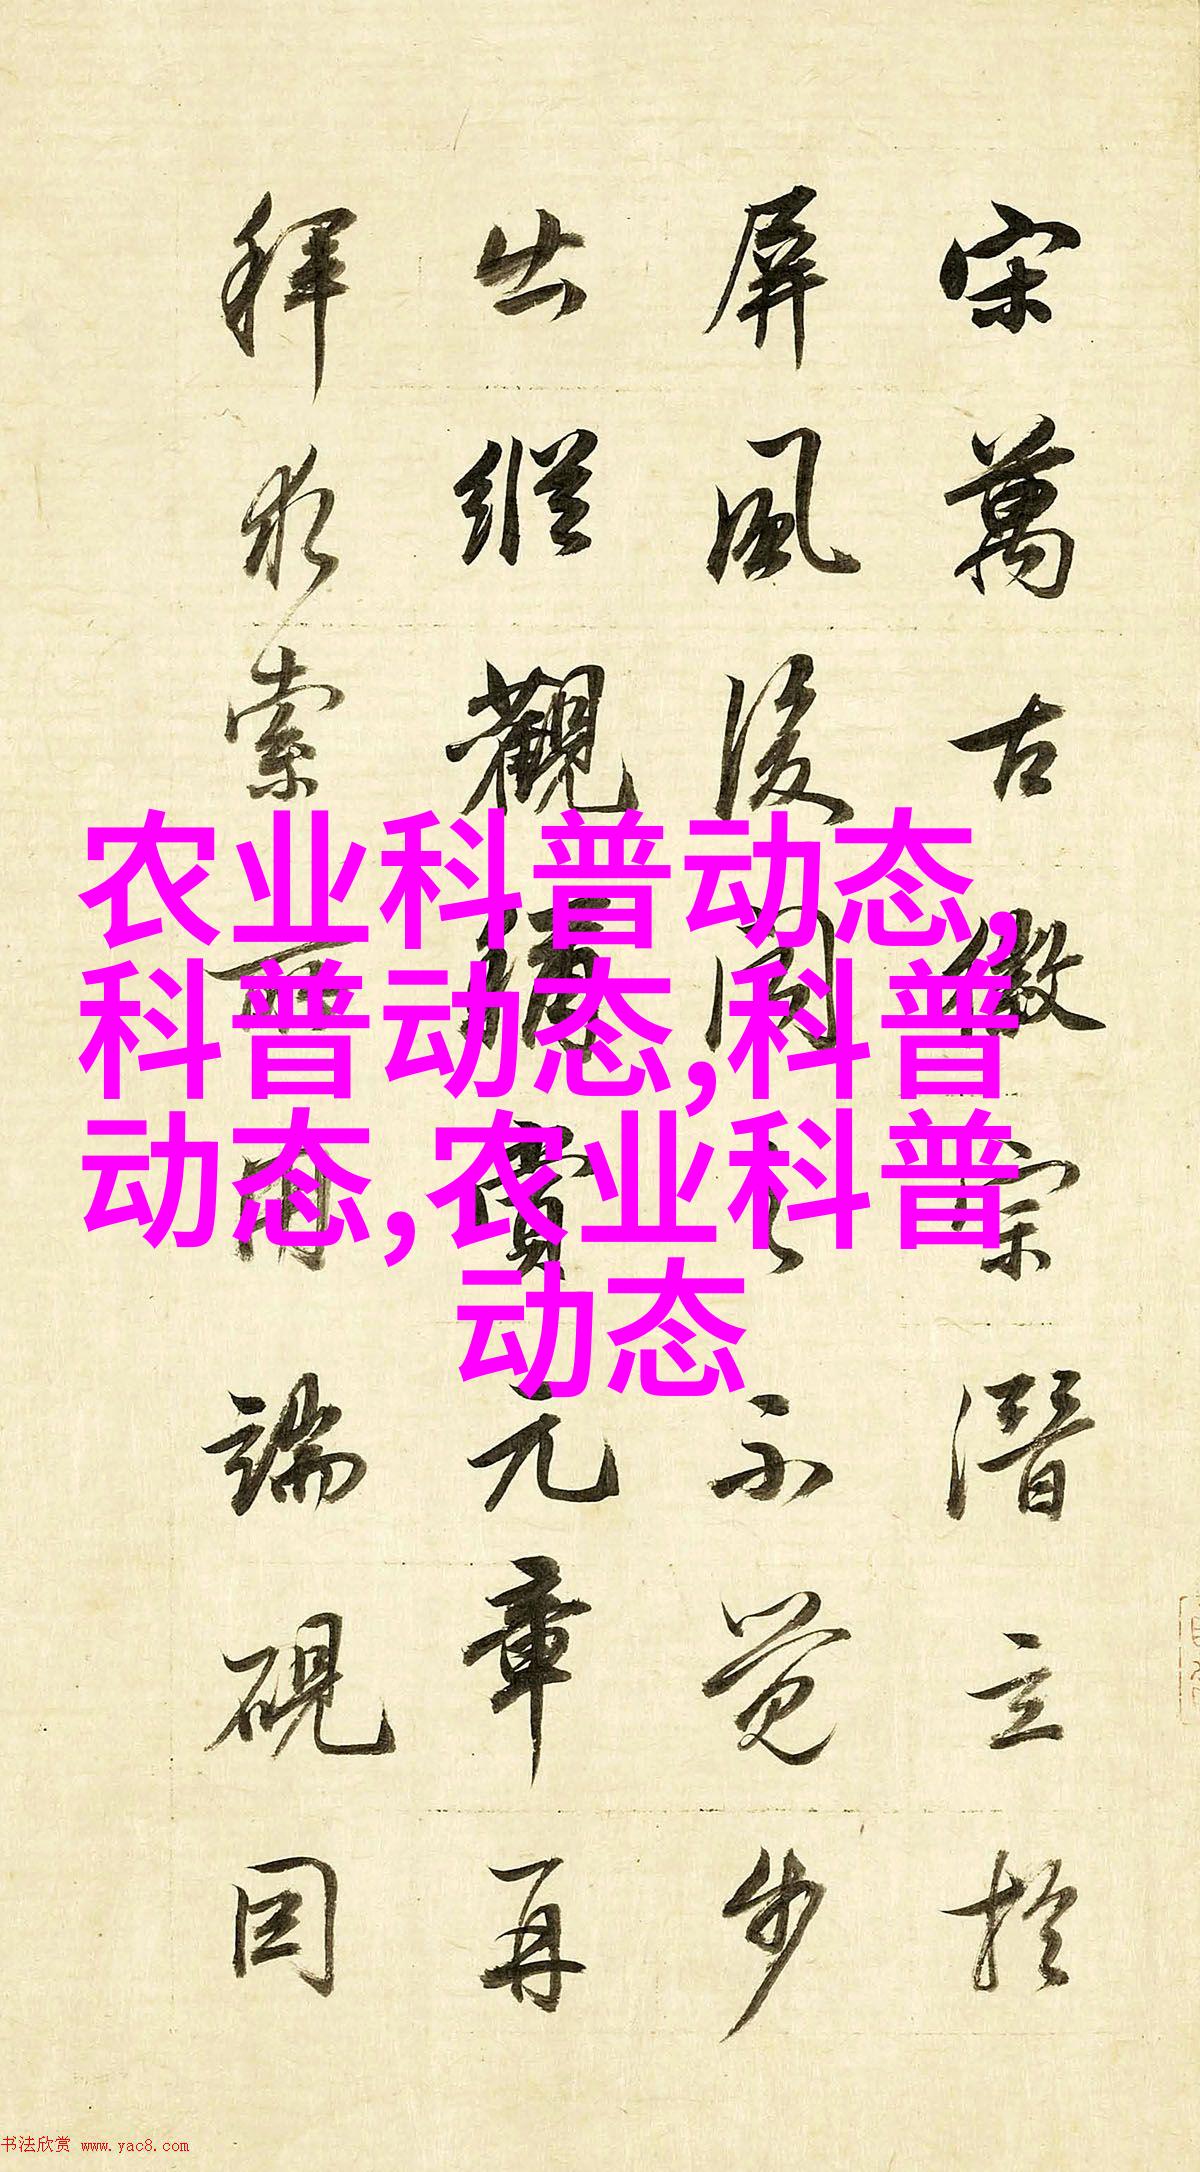 宋萬古徽宗潛立於
屏風後聞之不覺步
出縱觀稱賞元章再
拜求索所用端硯因
农业科普动态,
科普动态,科普
动态,农业科普
动态
书法欣赏 www.yac8.com